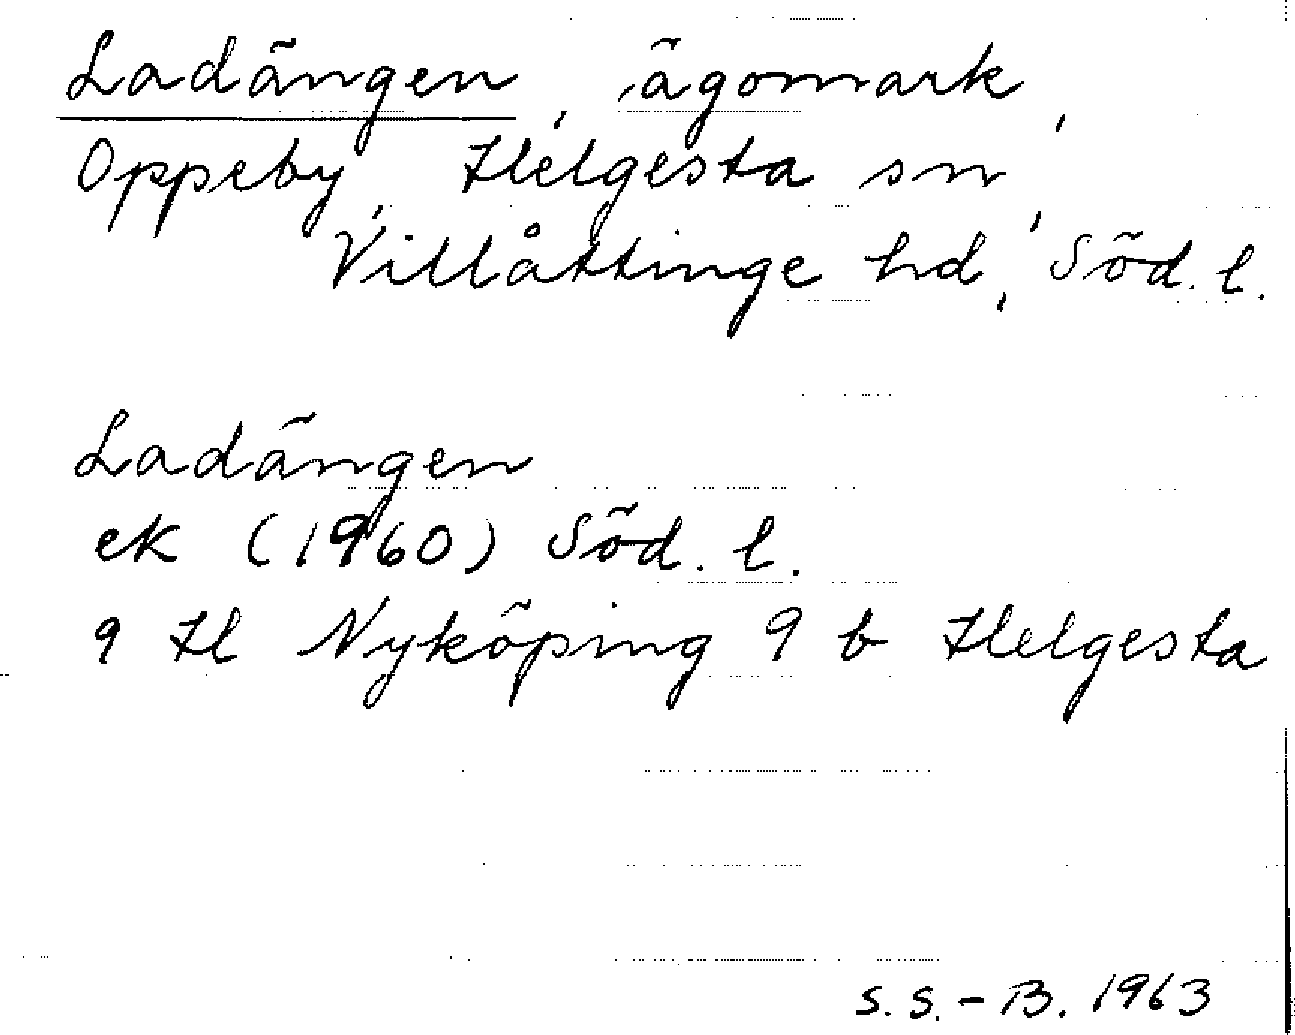 Ladängen, ägomark,
Oppeby, Helgesta sn,
Villåttinge hd, Söd. l.
Ladängen
ek (1960) Söd. l.
9 H Nyköping 9 b Helgesta
S. S. - B. 1963